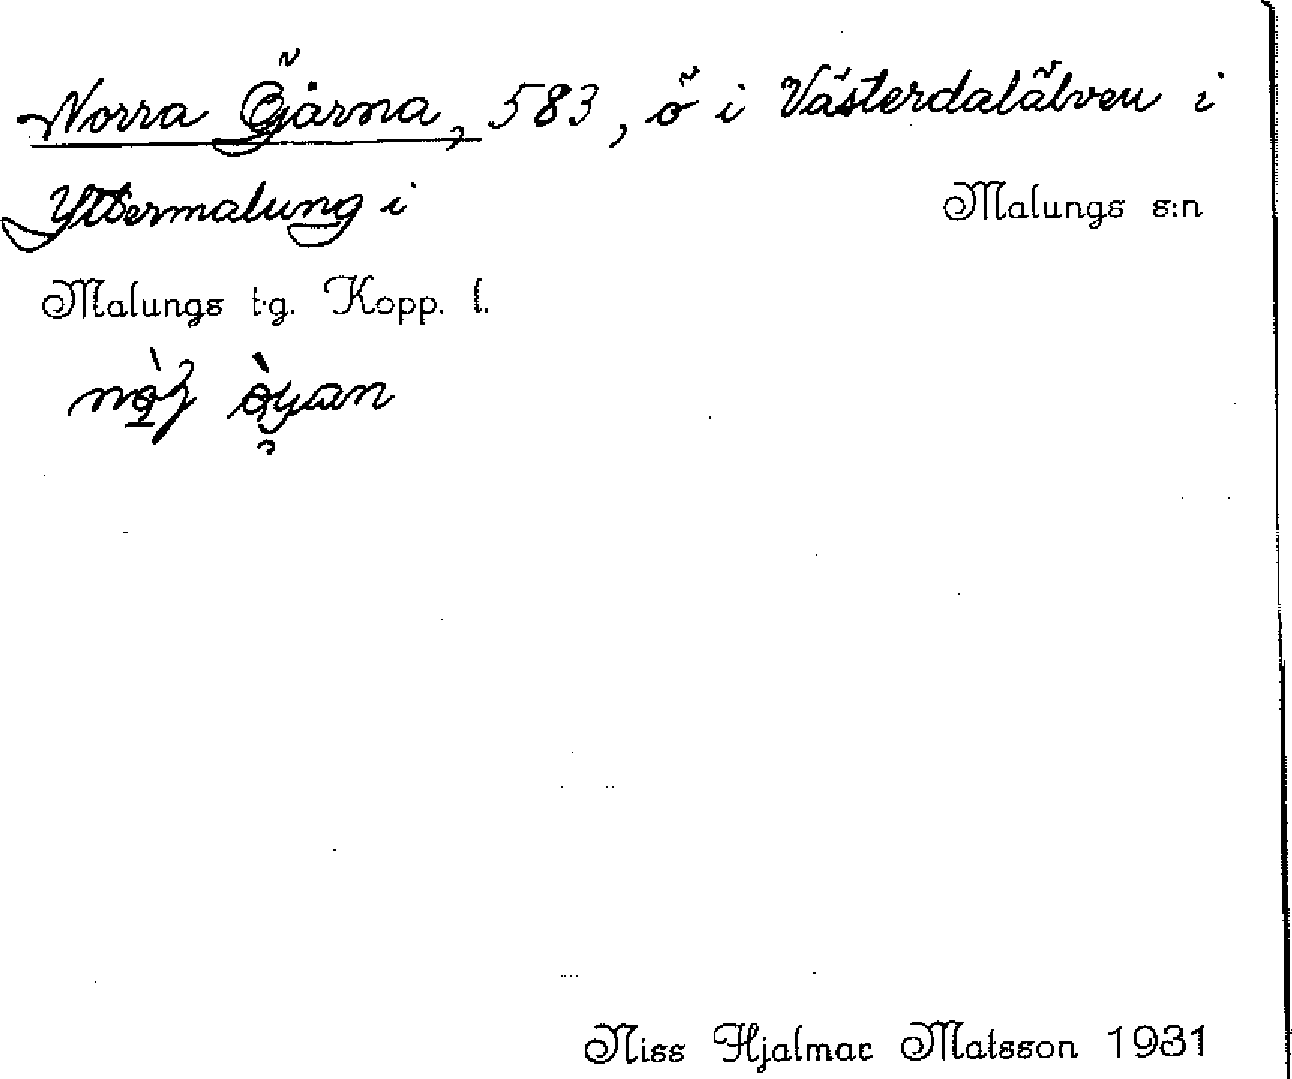 Norra Öjarna, 583, ö i Västerdalälven i
Yttermalung i Malungs s:n
Malungs t.g. Kopp. l.
Niss Hjalmar Matsson 1931